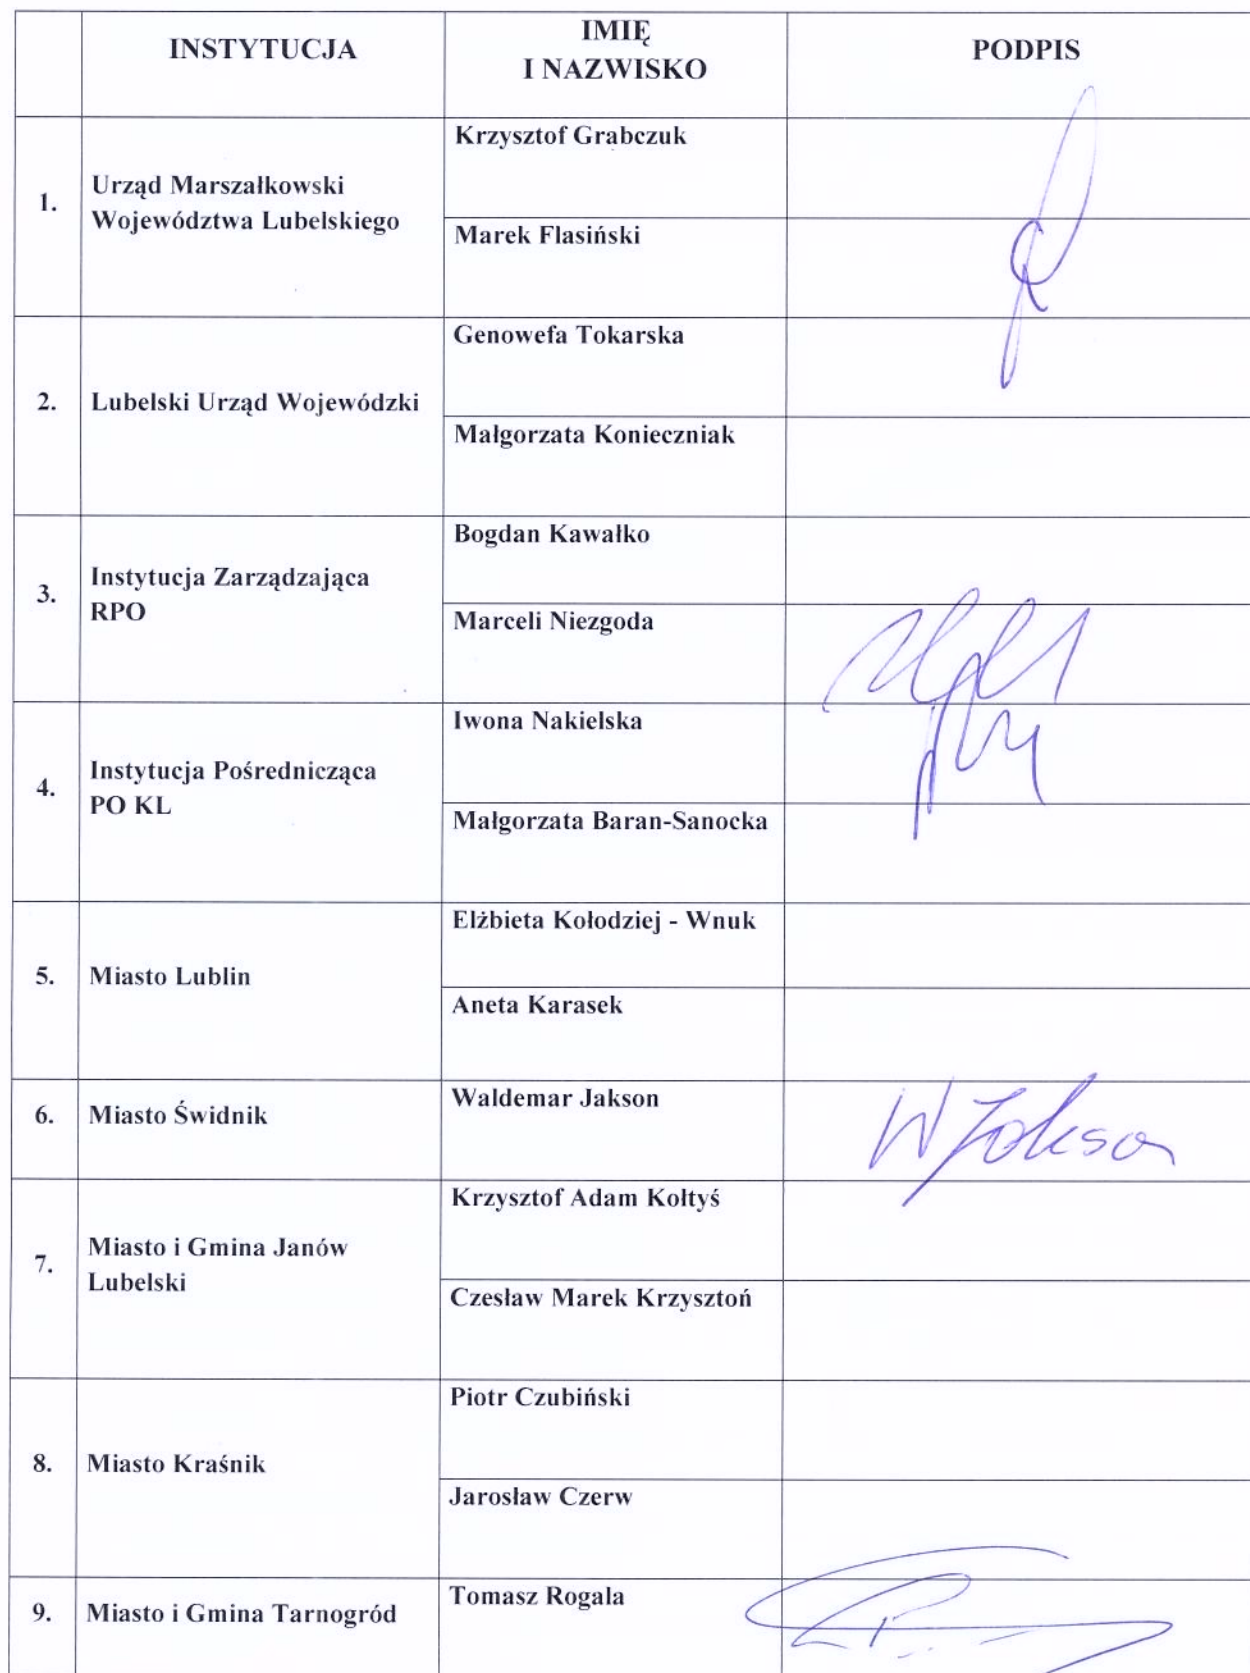 INSTYTUCJA
IMIĘ
I NAZWISKO
PODPIS
1.
Urząd Marszałkowski
Województwa Lubelskiego
Krzysztof Grabczuk
Marek Flasiński
2.
Lubelski Urząd Wojewódzki
Genowefa Tokarska
Małgorzata Konieczniak
3.
Instytucja Zarządzająca
RPO
Bogdan Kawałko
Marceli Niezgoda
4.
Instytucja Pośrednicząca
PO KL
Iwona Nakielska
Małgorzata Baran-Sanocka
5.
Miasto Lublin
Elżbieta Kołodziej - Wnuk
Aneta Karasek
6.
Miasto Świdnik
Waldemar Jakson
W Jakson
7.
Miasto i Gmina Janów
Lubelski
Krzysztof Adam Kołtyś
Czesław Marek Krzysztoń
8.
Miasto Kraśnik
Piotr Czubiński
Jarosław Czerw
9.
Miasto i Gmina Tarnogród
Tomasz Rogala